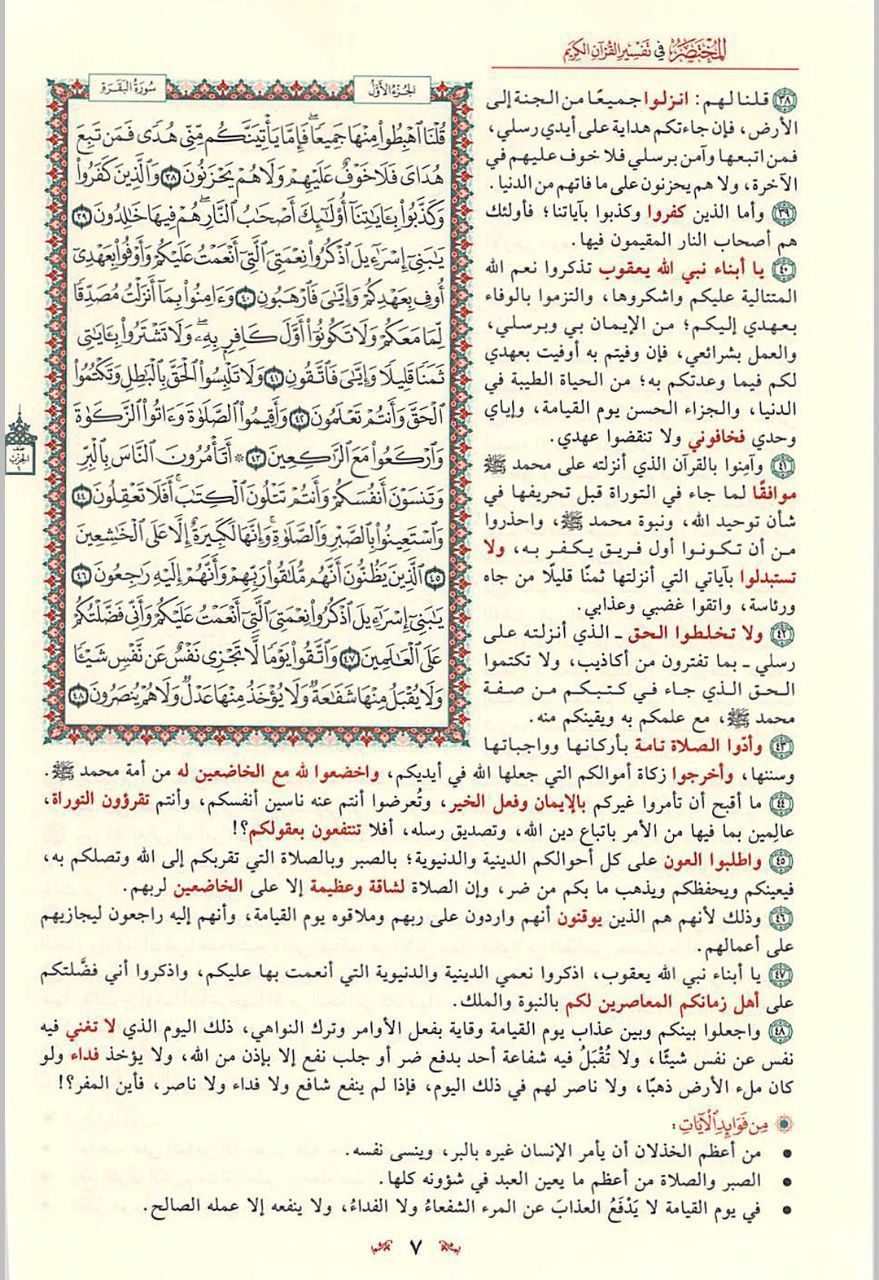 المختصر في تفسير القرآن الكريم
سورة البقرة
الجزء الأول
قُلْنَا ٱهْبِطُوا۟ مِنْهَا جَمِيعًا ۖ فَإِمَّا يَأْتِيَنَّكُم مِّنِّى هُدًى فَمَن تَبِعَ
هُدَاىَ فَلَا خَوْفٌ عَلَيْهِمْ وَلَا هُمْ يَحْزَنُونَ ٣٨ وَٱلَّذِينَ كَفَرُوا۟
وَكَذَّبُوا۟ بِـَٔايَـٰتِنَآ أُو۟لَـٰٓئِكَ أَصْحَـٰبُ ٱلنَّارِ ۖ هُمْ فِيهَا خَـٰلِدُونَ ٣٩
يَـٰبَنِىٓ إِسْرَٰٓءِيلَ ٱذْكُرُوا۟ نِعْمَتِىَ ٱلَّتِىٓ أَنْعَمْتُ عَلَيْكُمْ وَأَوْفُوا۟ بِعَهْدِىٓ
أُوفِ بِعَهْدِكُمْ وَإِيَّـٰىَ فَٱرْهَبُونِ ٤٠ وَءَامِنُوا۟ بِمَآ أَنزَلْتُ مُصَدِّقًا
لِّمَا مَعَكُمْ وَلَا تَكُونُوٓا۟ أَوَّلَ كَافِرٍۭ بِهِۦ ۖ وَلَا تَشْتَرُوا۟ بِـَٔايَـٰتِى
ثَمَنًا قَلِيلًا وَإِيَّـٰىَ فَٱتَّقُونِ ٤١ وَلَا تَلْبِسُوا۟ ٱلْحَقَّ بِٱلْبَـٰطِلِ وَتَكْتُمُوا۟
ٱلْحَقَّ وَأَنتُمْ تَعْلَمُونَ ٤٢ وَأَقِيمُوا۟ ٱلصَّلَوٰةَ وَءَاتُوا۟ ٱلزَّكَوٰةَ
وَٱرْكَعُوا۟ مَعَ ٱلرَّٰكِعِينَ ٤٣ * أَتَأْمُرُونَ ٱلنَّاسَ بِٱلْبِرِّ
وَتَنسَوْنَ أَنفُسَكُمْ وَأَنتُمْ تَتْلُونَ ٱلْكِتَـٰبَ ۚ أَفَلَا تَعْقِلُونَ ٤٤
وَٱسْتَعِينُوا۟ بِٱلصَّبْرِ وَٱلصَّلَوٰةِ ۚ وَإِنَّهَا لَكَبِيرَةٌ إِلَّا عَلَى ٱلْخَـٰشِعِينَ
٤٥ ٱلَّذِينَ يَظُنُّونَ أَنَّهُم مُّلَـٰقُوا۟ رَبِّهِمْ وَأَنَّهُمْ إِلَيْهِ رَٰجِعُونَ ٤٦
يَـٰبَنِىٓ إِسْرَٰٓءِيلَ ٱذْكُرُوا۟ نِعْمَتِىَ ٱلَّتِىٓ أَنْعَمْتُ عَلَيْكُمْ وَأَنِّى فَضَّلْتُكُمْ
عَلَى ٱلْعَـٰلَمِينَ ٤٧ وَٱتَّقُوا۟ يَوْمًا لَّا تَجْزِى نَفْسٌ عَن نَّفْسٍ شَيْـًٔا
وَلَا يُقْبَلُ مِنْهَا شَفَـٰعَةٌ وَلَا يُؤْخَذُ مِنْهَا عَدْلٌ وَلَا هُمْ يُنصَرُونَ ٤٨
٣٨ قلنا لهم: انزلوا جميعًا من الجنة إلى
الأرض، فإن جاءتكم هداية على أيدي رسلي،
فمن اتبعها وآمن برسلي فلا خوف عليهم في
الآخرة، ولا هم يحزنون على ما فاتهم من الدنيا.
٣٩ وأما الذين كفروا وكذبوا بآياتنا؛ فأولئك
هم أصحاب النار المقيمون فيها.
٤٠ يا أبناء نبي الله يعقوب تذكروا نعم الله
المتتالية عليكم واشكروها، والتزموا بالوفاء
بعهدي إليكم؛ من الإيمان بي وبرسلي،
والعمل بشرائعي، فإن وفيتم به أوفيت بعهدي
لكم فيما وعدتكم به؛ من الحياة الطيبة في
الدنيا، والجزاء الحسن يوم القيامة، وإياي
وحدي فخافوني ولا تنقضوا عهدي.
٤١ وآمِنوا بالقرآن الذي أنزلته على محمد ﷺ
موافقًا لما جاء في التوراة قبل تحريفها في
شأن توحيد الله، ونبوة محمد ﷺ، واحذروا
من أن تكونوا أول فريق يكفر به، ولا
تستبدلوا بآياتي التي أنزلتها ثمنًا قليلًا من جاه
ورئاسة، واتقوا غضبي وعذابي.
٤٢ ولا تخلطوا الحق ـ الذي أنزلته على
رسلي ـ بما تفترون من أكاذيب، ولا تكتموا
الحق الذي جاء في كتبكم من صفة
محمد ﷺ، مع علمكم به ويقينكم منه.
٤٣ وأدّوا الصلاة تامة بأركانها وواجباتها
وسننها، وأخرجوا زكاة أموالكم التي جعلها الله في أيديكم، واخضعوا لله مع الخاضعين له من أمة محمد ﷺ.
٤٤ ما أقبح أن تأمروا غيركم بالإيمان وفعل الخير، وتُعرضوا أنتم عنه ناسين أنفسكم، وأنتم تقرؤون التوراة،
عالِمين بما فيها من الأمر باتباع دين الله، وتصديق رسله، أفلا تنتفعون بعقولكم؟!
٤٥ واطلبوا العون على كل أحوالكم الدينية والدنيوية؛ بالصبر وبالصلاة التي تقربكم إلى الله وتصلكم به،
فيعينكم ويحفظكم ويذهب ما بكم من ضر، وإن الصلاة لشاقة وعظيمة إلا على الخاضعين لربهم.
٤٦ وذلك لأنهم هم الذين يوقنون أنهم واردون على ربهم وملاقوه يوم القيامة، وأنهم إليه راجعون ليجازيهم
على أعمالهم.
٤٧ يا أبناء نبي الله يعقوب، اذكروا نعمي الدينية والدنيوية التي أنعمت بها عليكم، واذكروا أني فضَّلتكم
على أهل زمانكم المعاصرين لكم بالنبوة والملك.
٤٨ واجعلوا بينكم وبين عذاب يوم القيامة وقاية بفعل الأوامر وترك النواهي، ذلك اليوم الذي لا تغني فيه
نفس عن نفس شيئًا، ولا تُقْبَلُ فيه شفاعة أحد بدفع ضر أو جلب نفع إلا بإذن من الله، ولا يؤخذ فداء ولو
كان ملء الأرض ذهبًا، ولا ناصر لهم في ذلك اليوم، فإذا لم ينفع شافع ولا فداء ولا ناصر، فأين المفر؟!
من فوائد الآيات:
• من أعظم الخذلان أن يأمر الإنسان غيره بالبر، وينسى نفسه.
• الصبر والصلاة من أعظم ما يعين العبد في شؤونه كلها.
• في يوم القيامة لا يَدْفَعُ العذابَ عن المرء الشفعاءُ ولا الفداءُ، ولا ينفعه إلا عمله الصالح.
٧